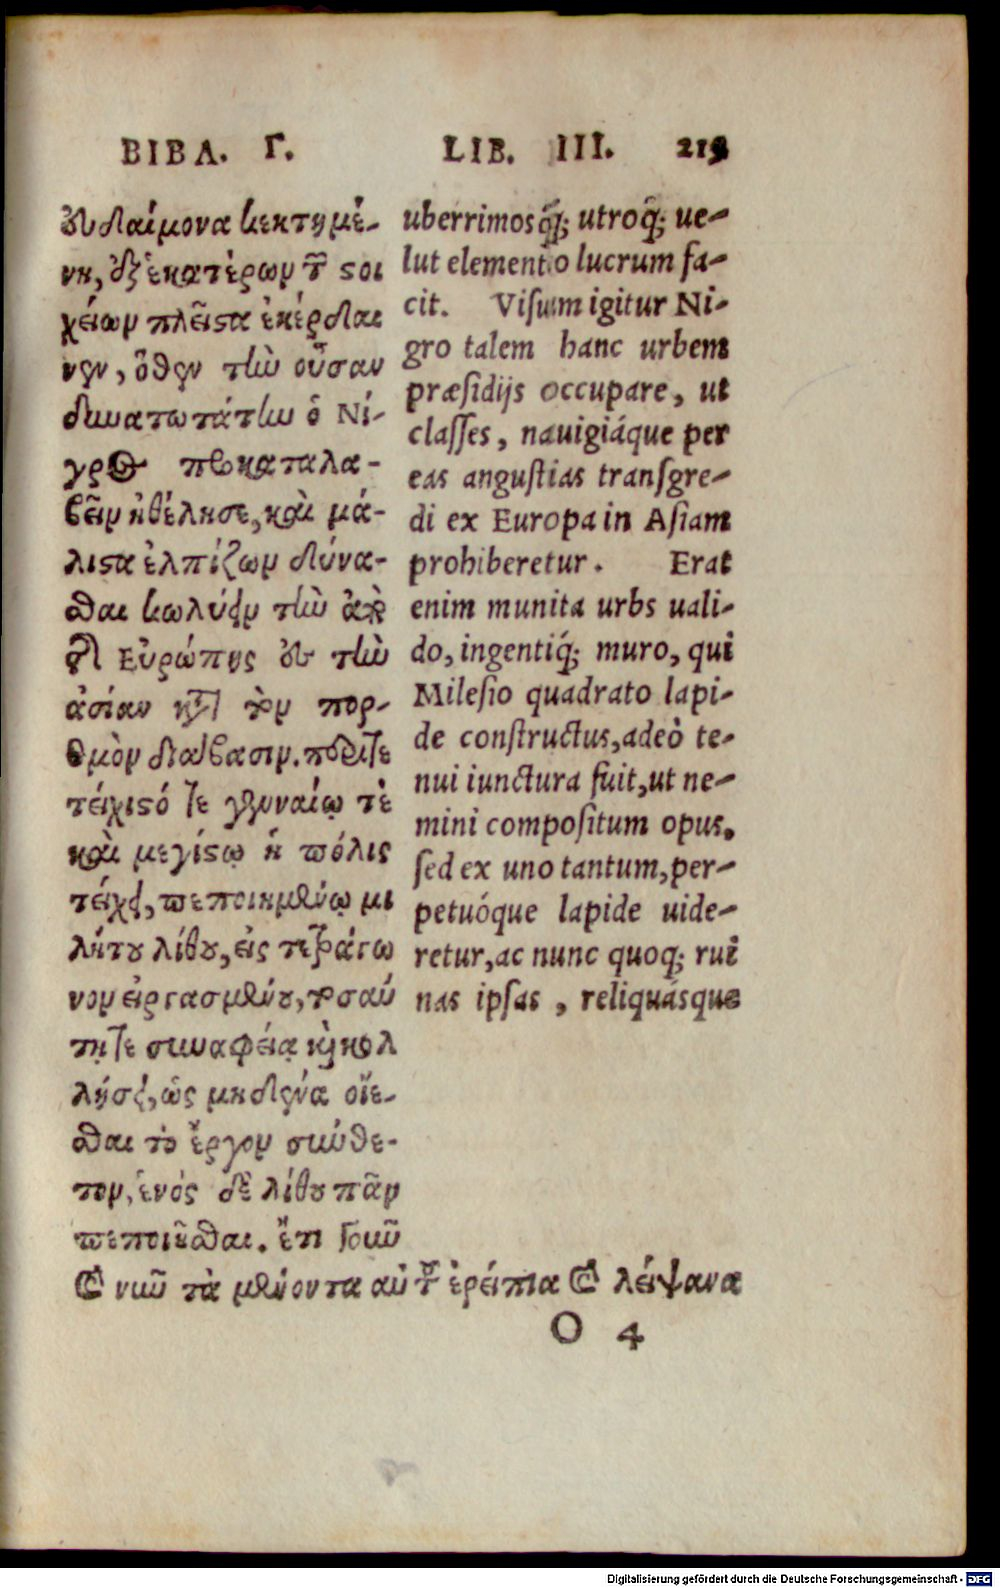 ΒΙΒΛ. Γ.
εὐδαίμονα κεκτημέ-
νη, ἐξ ἑκατέρων τῶν ϛοι
χείων πλεῖϛα ἐκέρδαι
νεν, ὅθεν τὴν οὖσαν
δυνατωτάτην ὁ Νί-
γρος προκαταλα-
βεῖν ἠθέλησε, καὶ μά-
λιϛα ἐλπίζων δύνα-
σθαι κωλύειν τὴν ἀπὸ
τῆς Εὐρώπης ἐπὶ τὴν
ἀσίαν κατὰ τὸν πορ-
θμὸν διάβασιν.
τείχιϛό τε γενναίῳ τὲ
καὶ μεγίϛῳ ἡ πόλις
τείχει, πεποιημένῳ μι
λήτου λίθου, εἰς τετράγω
νον εἰργασμένου, τοσαύ
τῃ τε συναφείᾳ καὶ κολ
λήσει, ὡς μηδένα οἴε-
σθαι τὸ ἔργον σύνθε-
τον, ἑνός δὲ λίθου πᾶν
πεποιῆσθαι. ἔτι γοῦν
καὶ νῦν τὰ μένοντα αὐτοῦ ἐρείπια καὶ λείψανα
LIB. III. 215
uberrimosq́; utroq́; ue-
lut elemento lucrum fa-
cit. Visum igitur Ni-
gro talem hanc urbem
præsidijs occupare, ut
classes, nauigiáque per
eas angustias transgre-
di ex Europa in Asiam
prohiberetur. Erat
enim munita urbs uali-
do, ingentiq́; muro, qui
Milesio quadrato lapi-
de constructus, adeò te-
nui iunctura fuit, ut ne-
mini compositum opus,
sed ex uno tantum, per-
petuóque lapide uide-
retur, ac nunc quoq; rui
nas ipsas, reliquásque
O 4
Digitalisierung gefördert durch die Deutsche Forschungsgemeinschaft - DFG